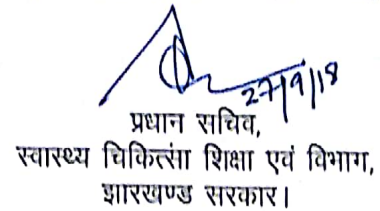 27/9/18
प्रधान सचिव,
स्वास्थ्य चिकित्सा शिक्षा एवं विभाग,
झारखण्ड सरकार।